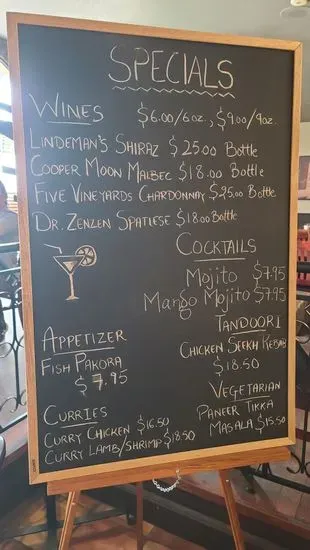 SPECIALS
WINES $6.00/6oz., $9.00/9oz.
LINDEMAN'S SHIRAZ $25.00 Bottle
COOPER MOON MALBEC $18.00 Bottle
FIVE VINEYARDS CHARDONNAY $25.00 Bottle
DR. ZENZEN SPATIESE $18.00 Bottle
COCKTAILS
Mojito $7.95
Mango Mojito $7.95
TANDOORI
CHICKEN SEEKH KEBAB
$18.50
APPETIZER
FISH PAKORA
$7.95
VEGETARIAN
PANEER TIKKA
MASALA $15.50
CURRIES
CURRY CHICKEN $16.50
CURRY LAMB/SHRIMP $18.50